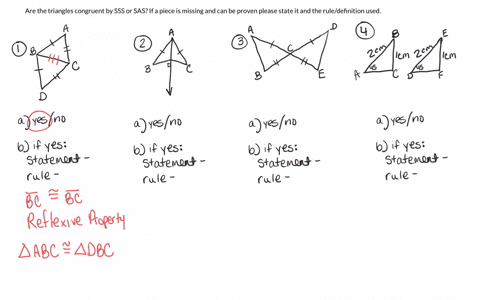 Are the triangles congruent by SSS or SAS? If a piece is missing and can be proven please state it and the rule/definition used.
① A B C D
② A B C
③ A D C B E
④ B E 2cm 1cm 2cm 1cm A C D F
a) yes/no a) yes/no a) yes/no a) yes/no
b) if yes: b) if yes: b) if yes: b) if yes:
Statement - Statement - Statement - Statement -
rule - rule - rule - rule -
BC ≅ BC
Reflexive Property
△ABC ≅ △DBC